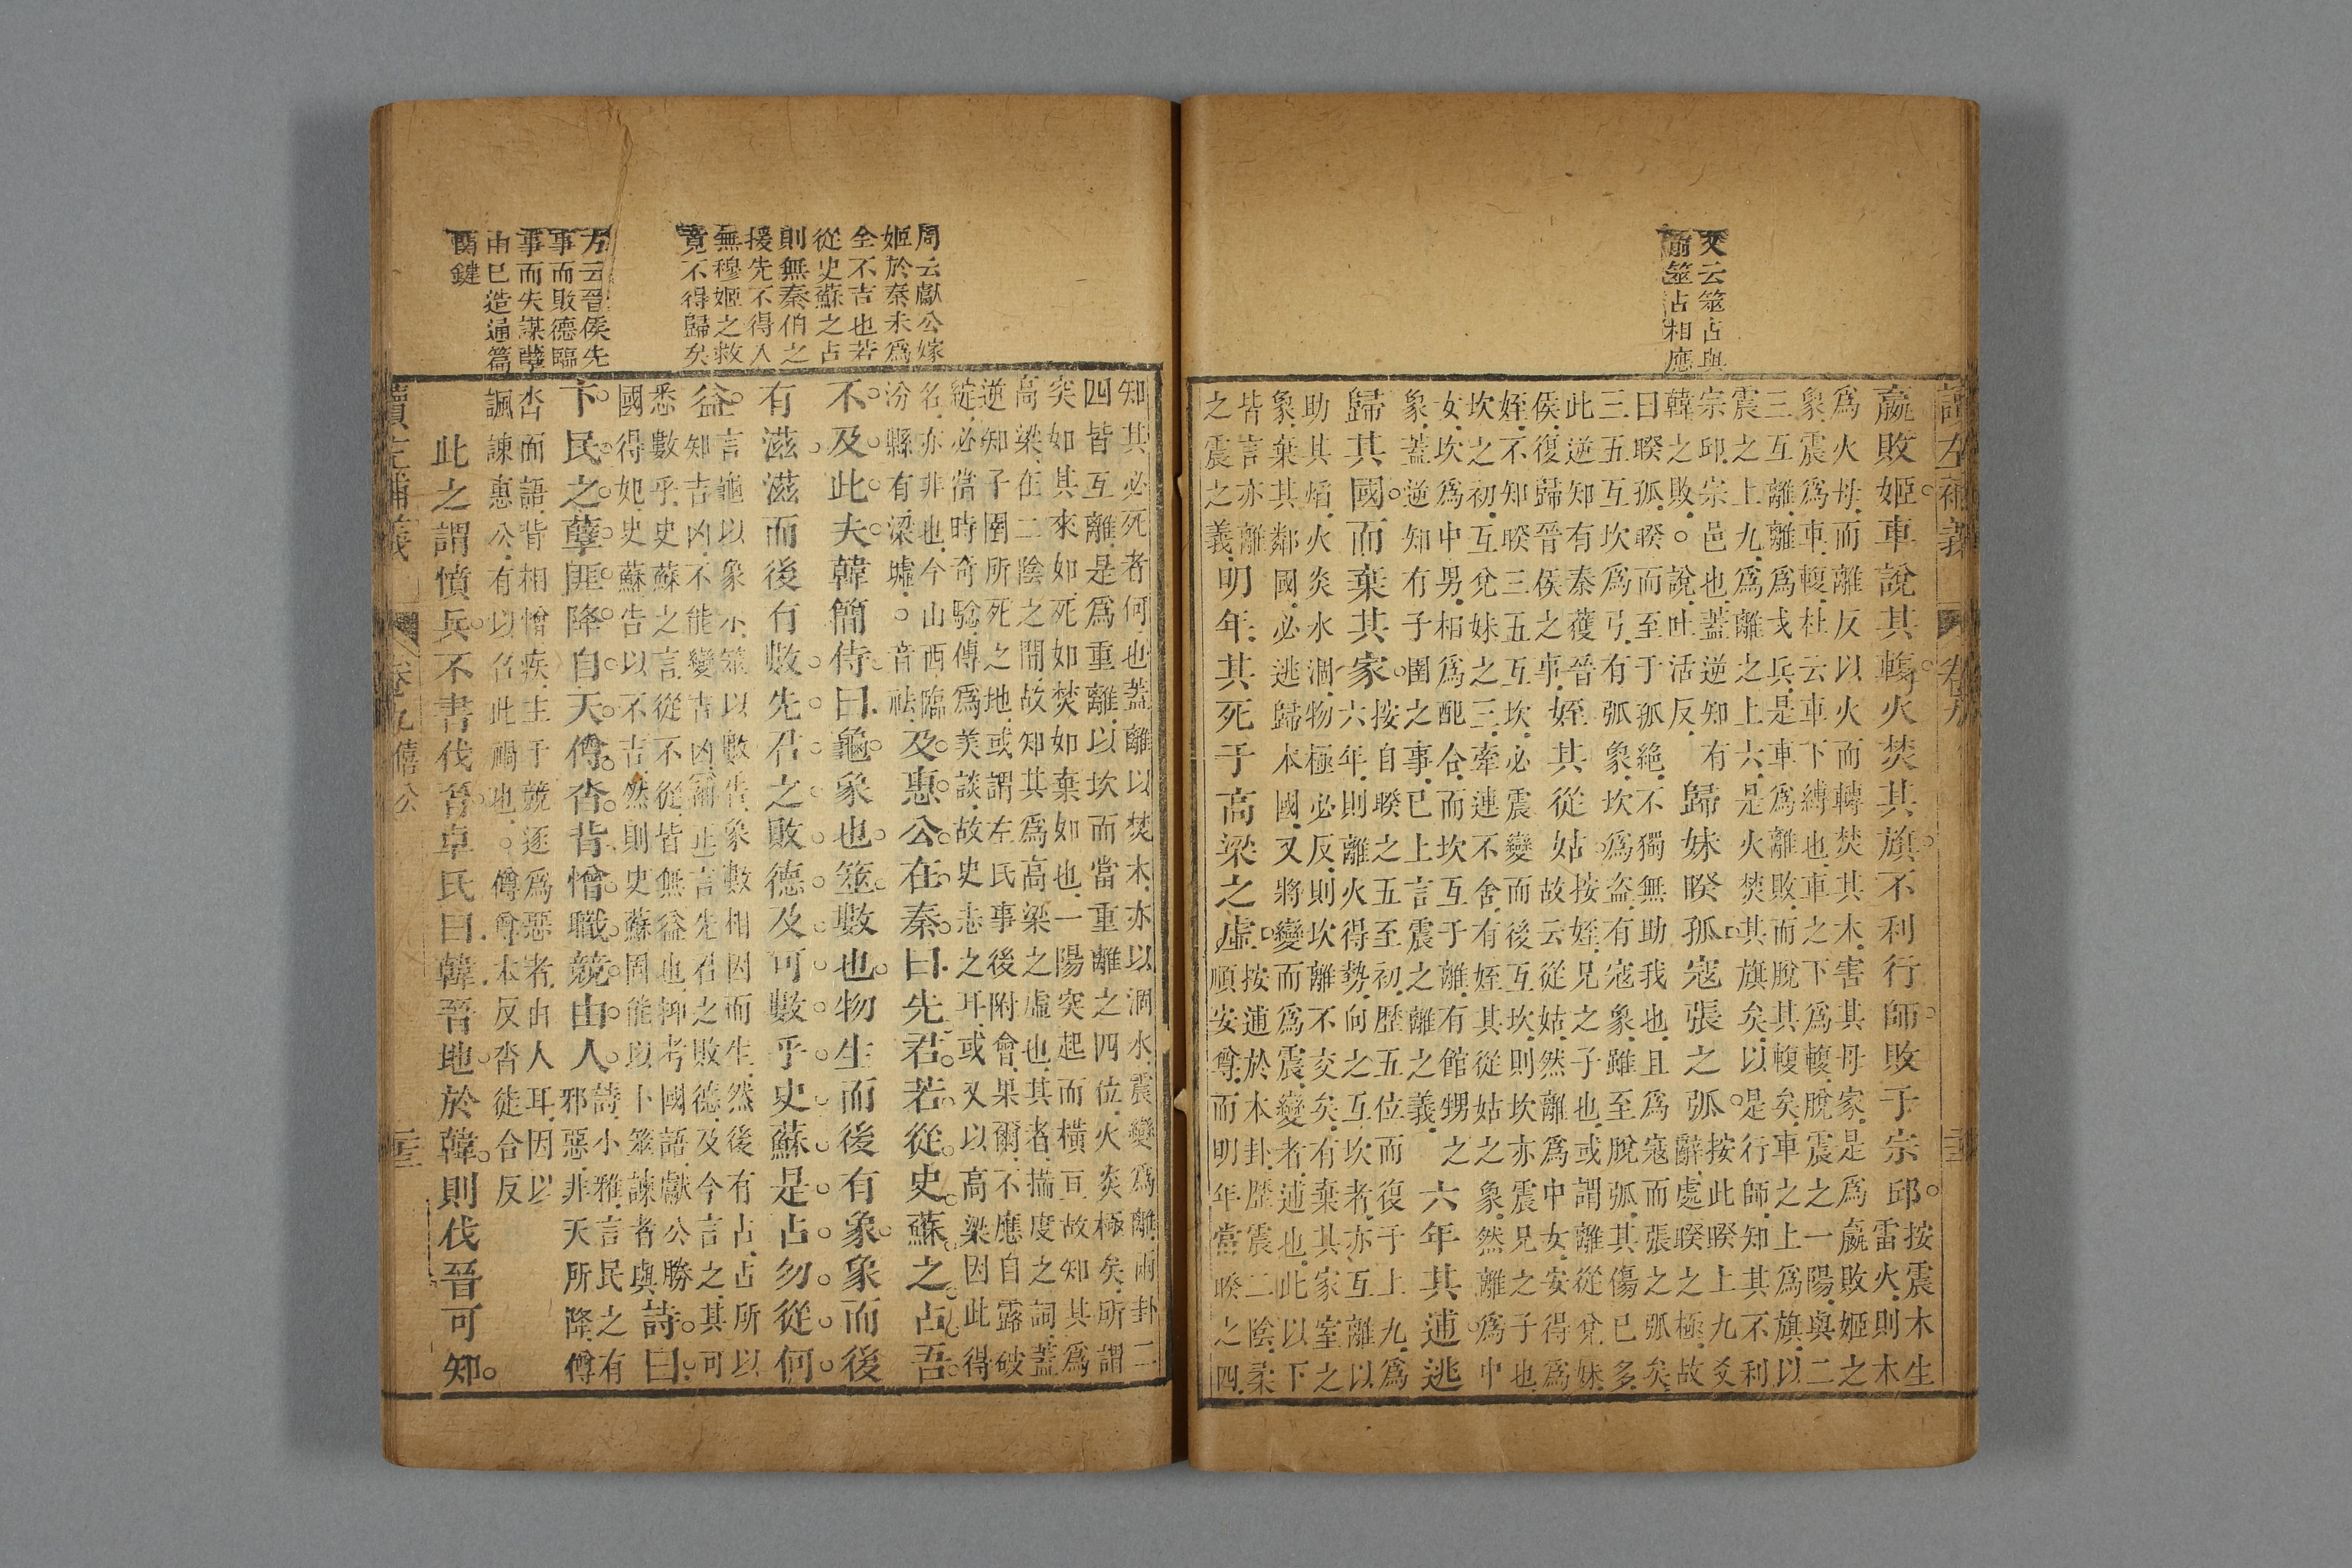 讀左補義 卷九
又云筮占與
前筮占相應
嬴敗姬車說其輹火焚其旗不利行師敗于宗邱按震木生
雷火則木
為火母而離反以火而轉焚其木害其母家是為嬴敗姬之
象震為車輹杜云車下縛也車之下為輹脫震之一陽與二
三互離離為戈兵是車為離敗而脫其輹矣車之上為旗以
震之上九為離之上六是火焚其旗矣以是行師知其不利
宗邱宗邑也蓋逆知有
韓之敗○說吐活反
歸妹睽孤寇張之弧按此睽上九爻
辭處睽之極故
曰睽孤睽而至于孤絕不獨無助我也且為寇而張之弧矣
三五互坎為弓有弧象坎為盜有寇象雖至脫弧其傷已多
此逆知有秦獲晉
侯復歸晉侯之事
姪其從姑按姪兄之子也或謂離從兌妹
故云從姑然離為中女安得為
姪不知睽三五互坎必震變而後互坎則坎亦震兄之子也
坎之初互兌妹之三牽連不舍有姪其從姑之象然離為中
女坎為中男相為配合而坎互于離有館甥之
象蓋逆知有子圉之事已上言震之離之義
六年其逋逃
歸其國而棄其家按自睽之五至初歷五位而復于上九為
六年則離火得勢向之互坎者亦互離以
助其焰火炎水涸物極必反則坎離不交矣有棄其家室之
象棄其鄰國必逃歸本國又將變而為震變者逋也此以下
皆言亦離
之震之義
明年其死于高梁之虛按逋於木卦歷震二陰柔
順安尊而明年當睽之四
周云獻公嫁
姬於秦未為
全不吉也若
從史蘇之占
則無秦伯之
援先不得入
無穆姬之救
竟不得歸矣
方云晉侯先
事而敗德臨
事而失謀孽
由已造通篇
關鍵
知其必死者何也蓋離以焚木亦以涸水震變為離兩卦二
四皆互離是為重離以坎而當重離之四位火炎極矣所謂
突如其來如死如焚如棄如也一陽突起而橫亘故知其為
高梁在二陰之間故知其為高梁之虛也其者揣度之詞蓋
逆知子圉所死之地或謂左氏事後附會果爾不應自露破
綻必當時奇驗傳為美談故史志之耳或又以高梁因此得
名亦非也今山西臨
汾縣有梁墟○音祛
及惠公在秦曰先君若從史蘇之占吾
不及此夫韓簡侍曰龜象也筮數也物生而後有象象而後
有滋滋而後有數先君之敗德及可數乎史蘇是占勿從何
益言龜以象示筮以數告象數相因而生然後有占占所以
知吉凶不能變吉凶爾正言先君之敗德及今言之其可
悉數乎史蘇之言從不從皆無益也抑考國語獻公勝
國得妃史蘇告以不吉然則史蘇固能以卜筮諫者與
詩曰
下民之孽匪降自天僔沓背憎職競由人詩小雅言民之有
邪惡非天所降僔
沓而語背相憎疾主于競逐為惡者由人耳因以
諷諫惠公有以召此禍也○僔尊本反沓徒合反
此之謂憤兵不書伐晉卓氏曰韓晉地於韓則伐晉可知
讀左補義 卷九僖公